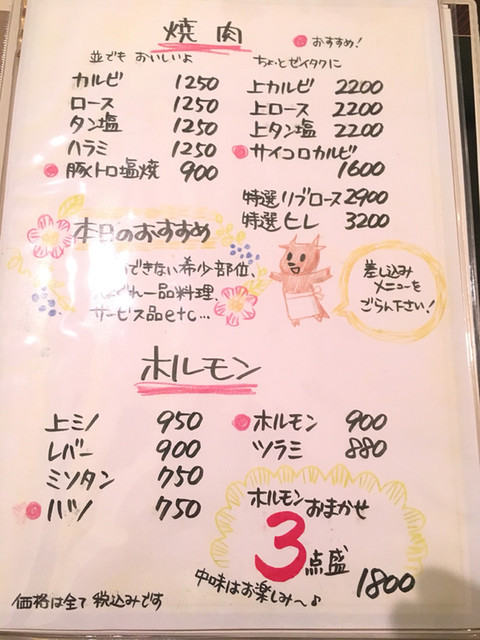 焼肉
おすすめ!
並でも おいしいよ
カルビ 1250
ロース 1250
タン塩 1250
ハラミ 1250
豚トロ塩焼 900
ちょっとゼイタクに
上カルビ 2200
上ロース 2200
上タン塩 2200
サイコロカルビ
1600
特選リブロース2900
特選ヒレ 3200
本日のおすすめ
できない希少部位、
一品料理、
サービス品etc...
差し込み
メニューを
ごらん下さい!
ホルモン
上ミノ 950
レバー 900
ミノタン 750
ハツ 750
ホルモン 900
ツラミ 880
ホルモンおまかせ
3点盛
中味はお楽しみ〜♪ 1800
価格は全て 税込みです